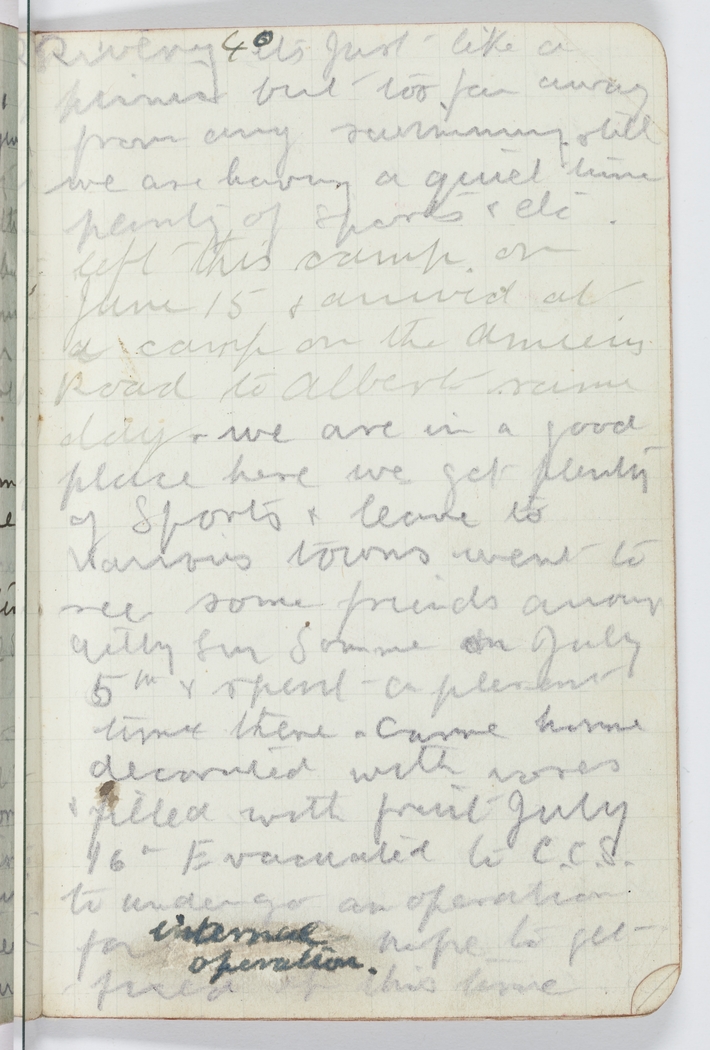 Rivery 40 its just like a
picnic but too far away
from any swimming still
we are having a quiet time
plenty of Sports & etc.
left this camp. on
June 15 & arrived at
a camp on the Amiens
Road to Albert same
day - we are in a good
place here we get plenty
of Sports & leave to
various towns went to
see some friends
Sur Somme on July
5th & spent a plesent
time there. Came home
decorated with roses
& filled with fruit July
16- Evacuated to C.C.S.
to undergo an operation
for internal hope to get
operation.
fixed this time